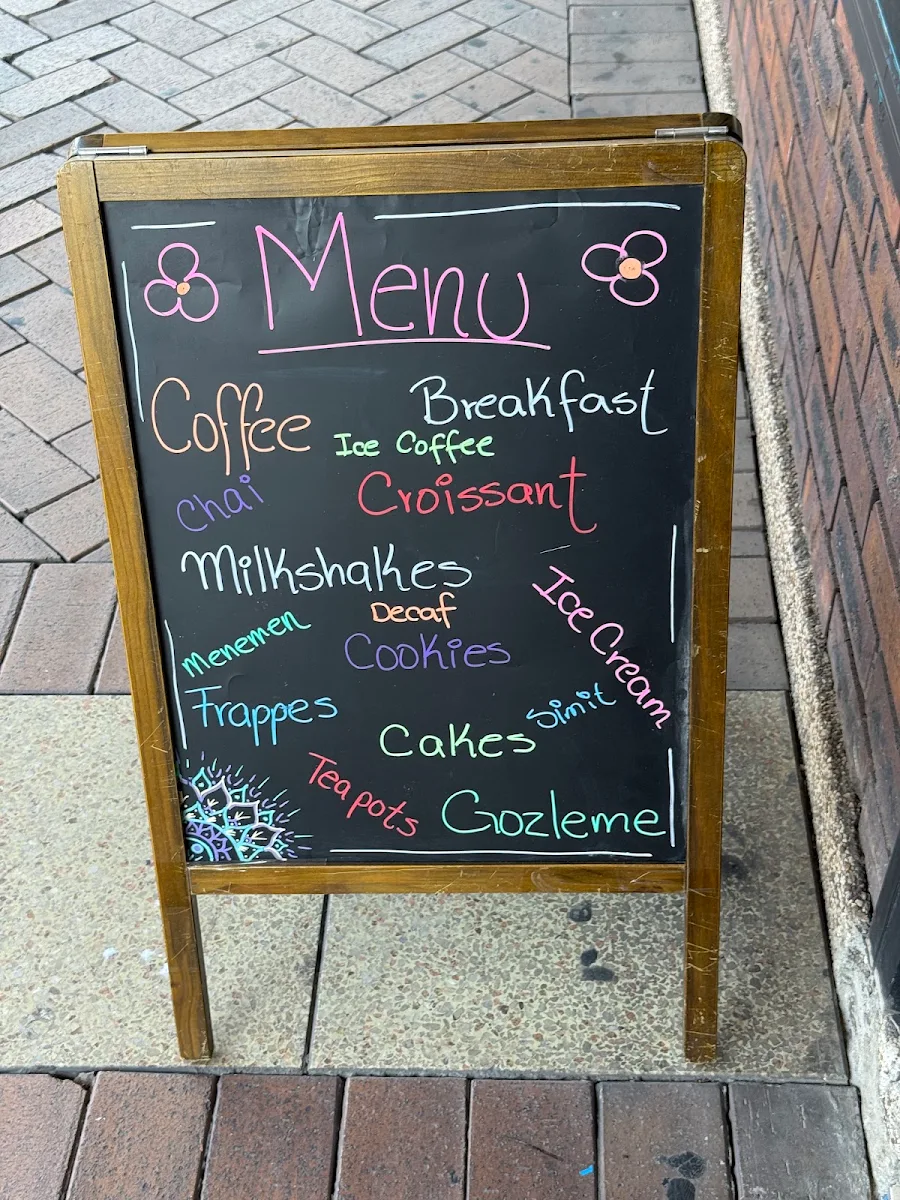 Menu
Coffee
Breakfast
Ice Coffee
Chai
Croissant
Milkshakes
Ice Cream
Decaf
Menemen
Cookies
Frappes
Simit
Cakes
Teapots
Gozleme